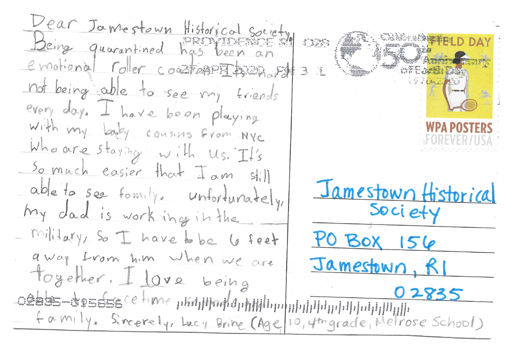 Dear Jamestown Historical Society,
Being quarantined has been an
emotional roller
not being able to see my friends
every day. I have been playing
with my baby cousins from NYC
who are staying with us. It's
so much easier that I am still
able to see family. Unfortunately,
my dad is working in the
military, so I have to be 6 feet
away from him when we are
together. I love being
able to facetime
family. Sincerely, Lucy (Age 10, 4th grade, Melrose School)
PROVIDENCE RI 028
27 APR 2020 PM 3 L
50th
Anniversary
of Earth Day
1970-2020
FIELD DAY
WPA POSTERS
FOREVER/USA
Jamestown Historical
Society
PO Box 156
Jamestown, RI
02835
02835-015656